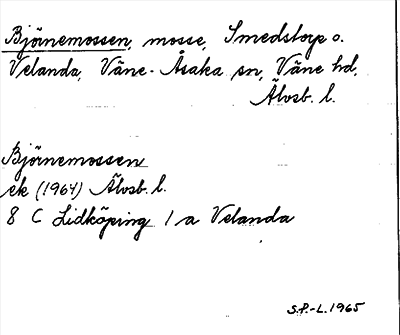 Björnemossen, mosse, Smedstorp o.
Velanda, Väne-Åsaka sn, Väne hd,
Älvsb. l.
Björnemossen
ek (1964) Älvsb. l.
8 C Lidköping 1 a Velanda
S.P.-L. 1965